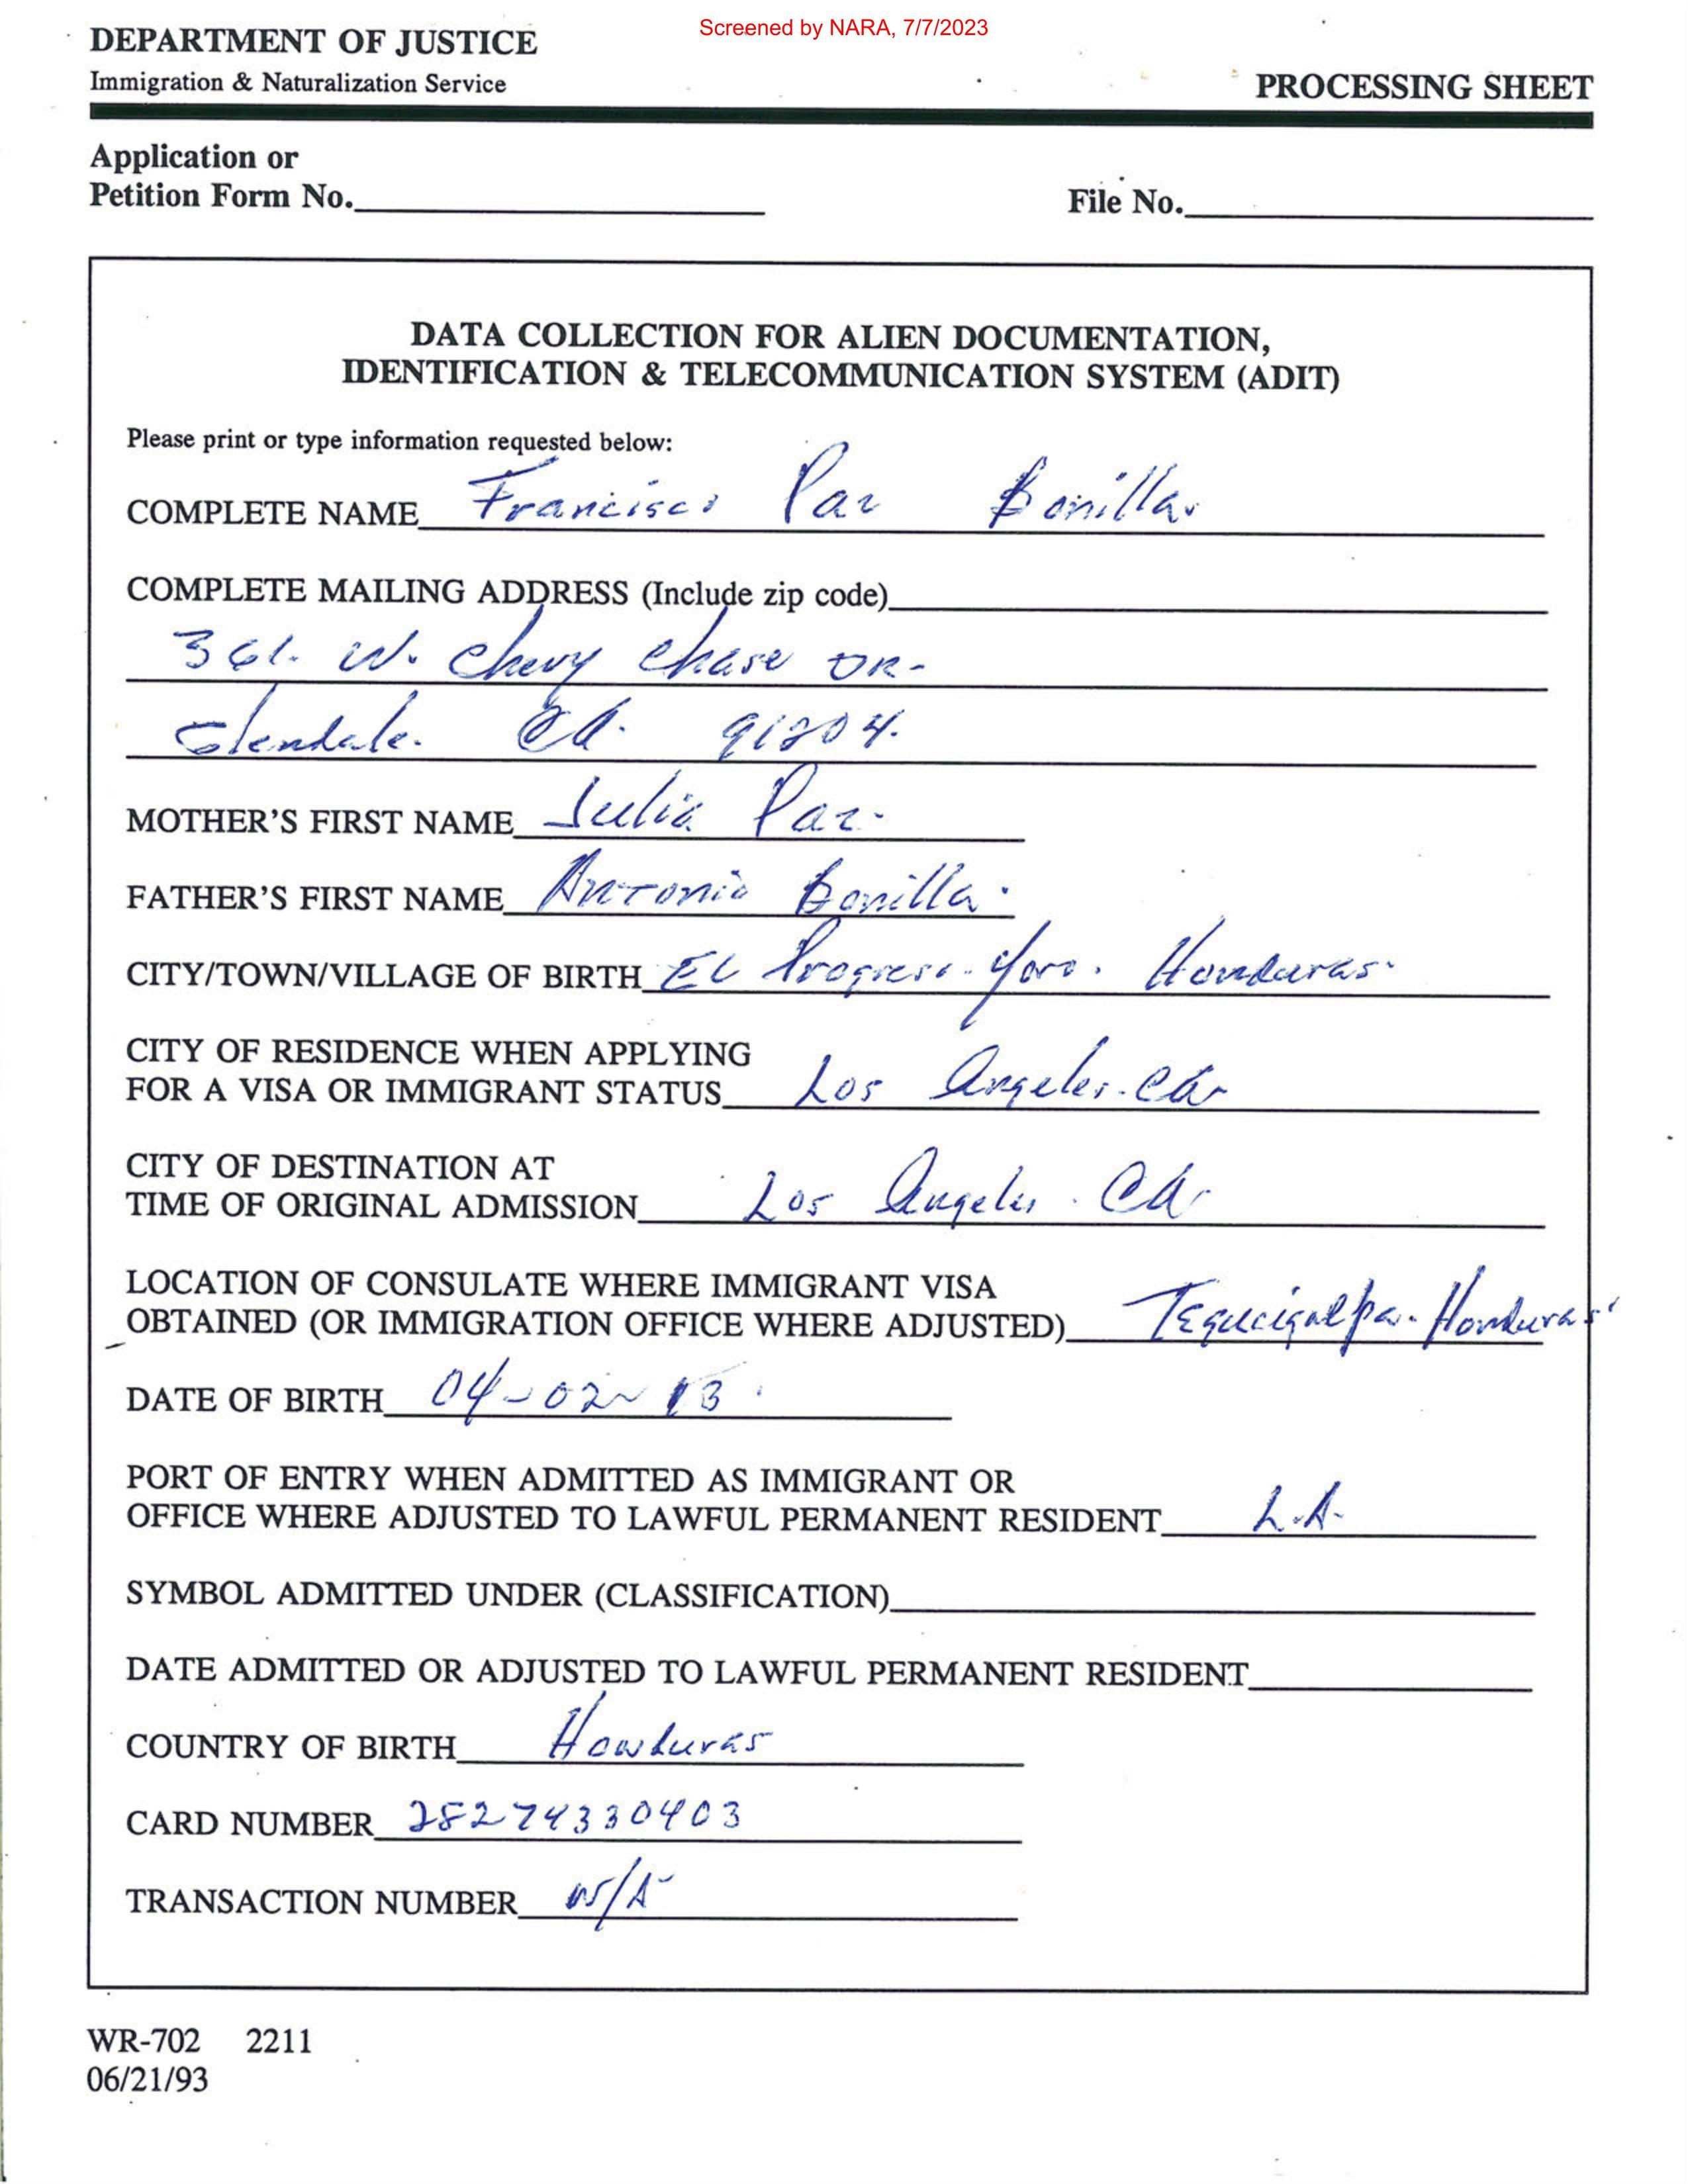 Screened by NARA, 7/7/2023
DEPARTMENT OF JUSTICE
Immigration & Naturalization Service
PROCESSING SHEET
Application or
Petition Form No.
File No.
DATA COLLECTION FOR ALIEN DOCUMENTATION,
IDENTIFICATION & TELECOMMUNICATION SYSTEM (ADIT)
Please print or type information requested below:
COMPLETE NAME Francisco Paz Bonilla.
COMPLETE MAILING ADDRESS (Include zip code)
361. W. Chevy Chase DR-
Glendale. CA. 91204.
MOTHER'S FIRST NAME Julia Paz.
FATHER'S FIRST NAME Antonio Bonilla.
CITY/TOWN/VILLAGE OF BIRTH EL Progreso. Yoro. Honduras.
CITY OF RESIDENCE WHEN APPLYING
FOR A VISA OR IMMIGRANT STATUS Los Angeles. CA
CITY OF DESTINATION AT
TIME OF ORIGINAL ADMISSION Los Angeles. CA.
LOCATION OF CONSULATE WHERE IMMIGRANT VISA
OBTAINED (OR IMMIGRATION OFFICE WHERE ADJUSTED) Tegucigalpa. Honduras
DATE OF BIRTH 04-02-13
PORT OF ENTRY WHEN ADMITTED AS IMMIGRANT OR
OFFICE WHERE ADJUSTED TO LAWFUL PERMANENT RESIDENT L.A.
SYMBOL ADMITTED UNDER (CLASSIFICATION)
DATE ADMITTED OR ADJUSTED TO LAWFUL PERMANENT RESIDENT
COUNTRY OF BIRTH Honduras
CARD NUMBER 28274330403
TRANSACTION NUMBER N/A
WR-702 2211
06/21/93